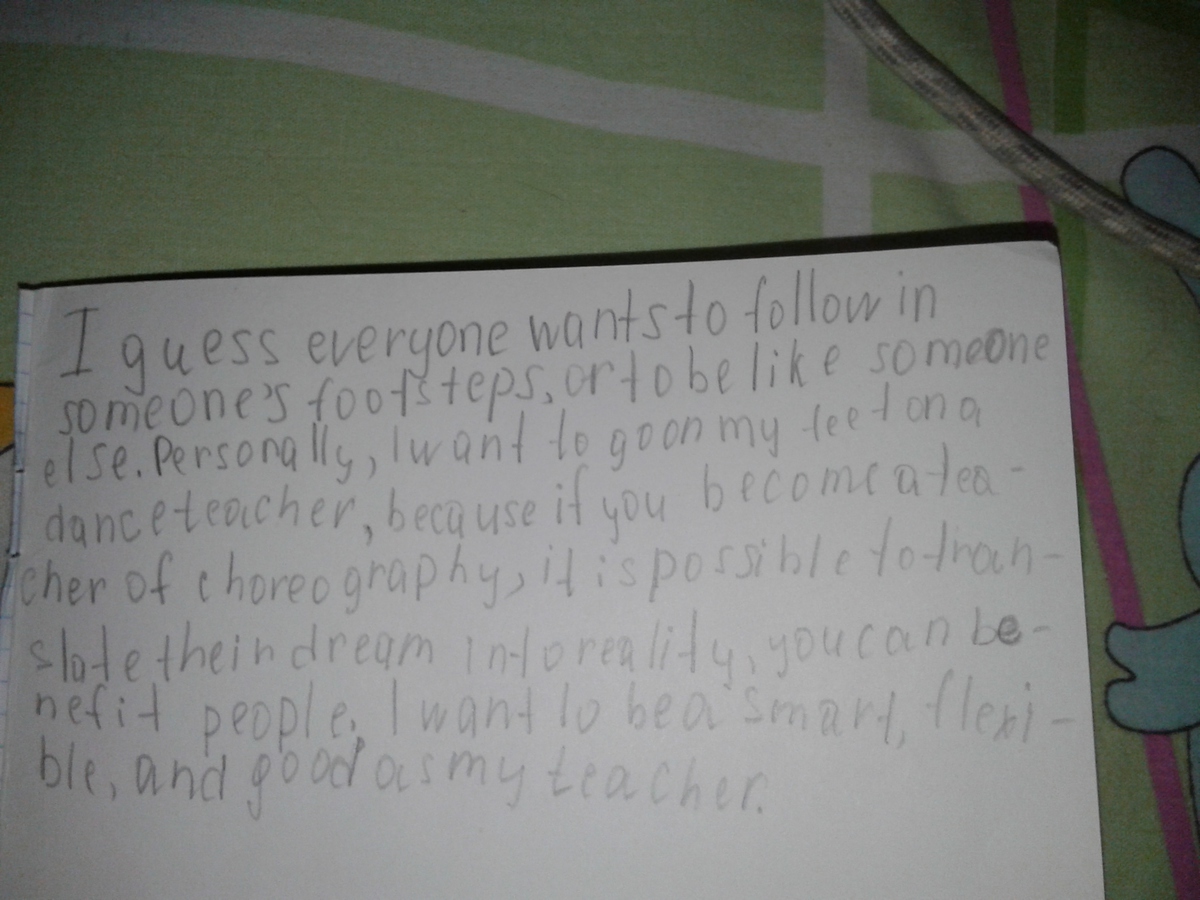 I guess everyone wants to follow in
someone's footsteps, or to be like someone
else. Personally, I want to go on my feet on a
dance teacher, because if you become a tea-
cher of choreography, it is possible to tran-
slate their dream into reality, you can be-
nefit people. I want to be a smart, flexi-
ble, and good as my teacher.